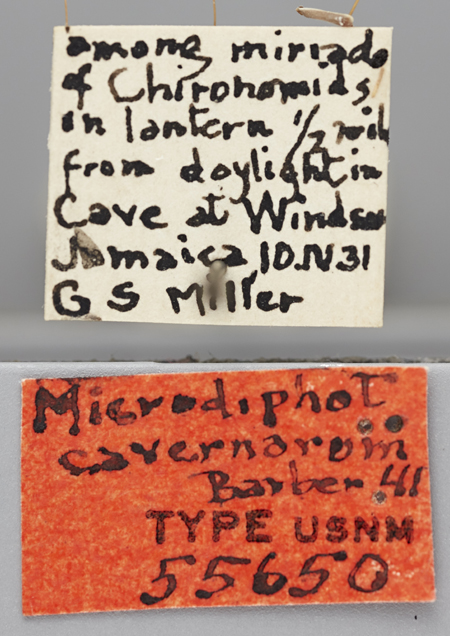 among miriads
of Chironomids
in lantern 1/2 mile
from daylight in
Cave at Windsor
Jamaica 10.IV31
G S Miller
Microdiphot
cavernarum
Barber 41
TYPE USNM
55650